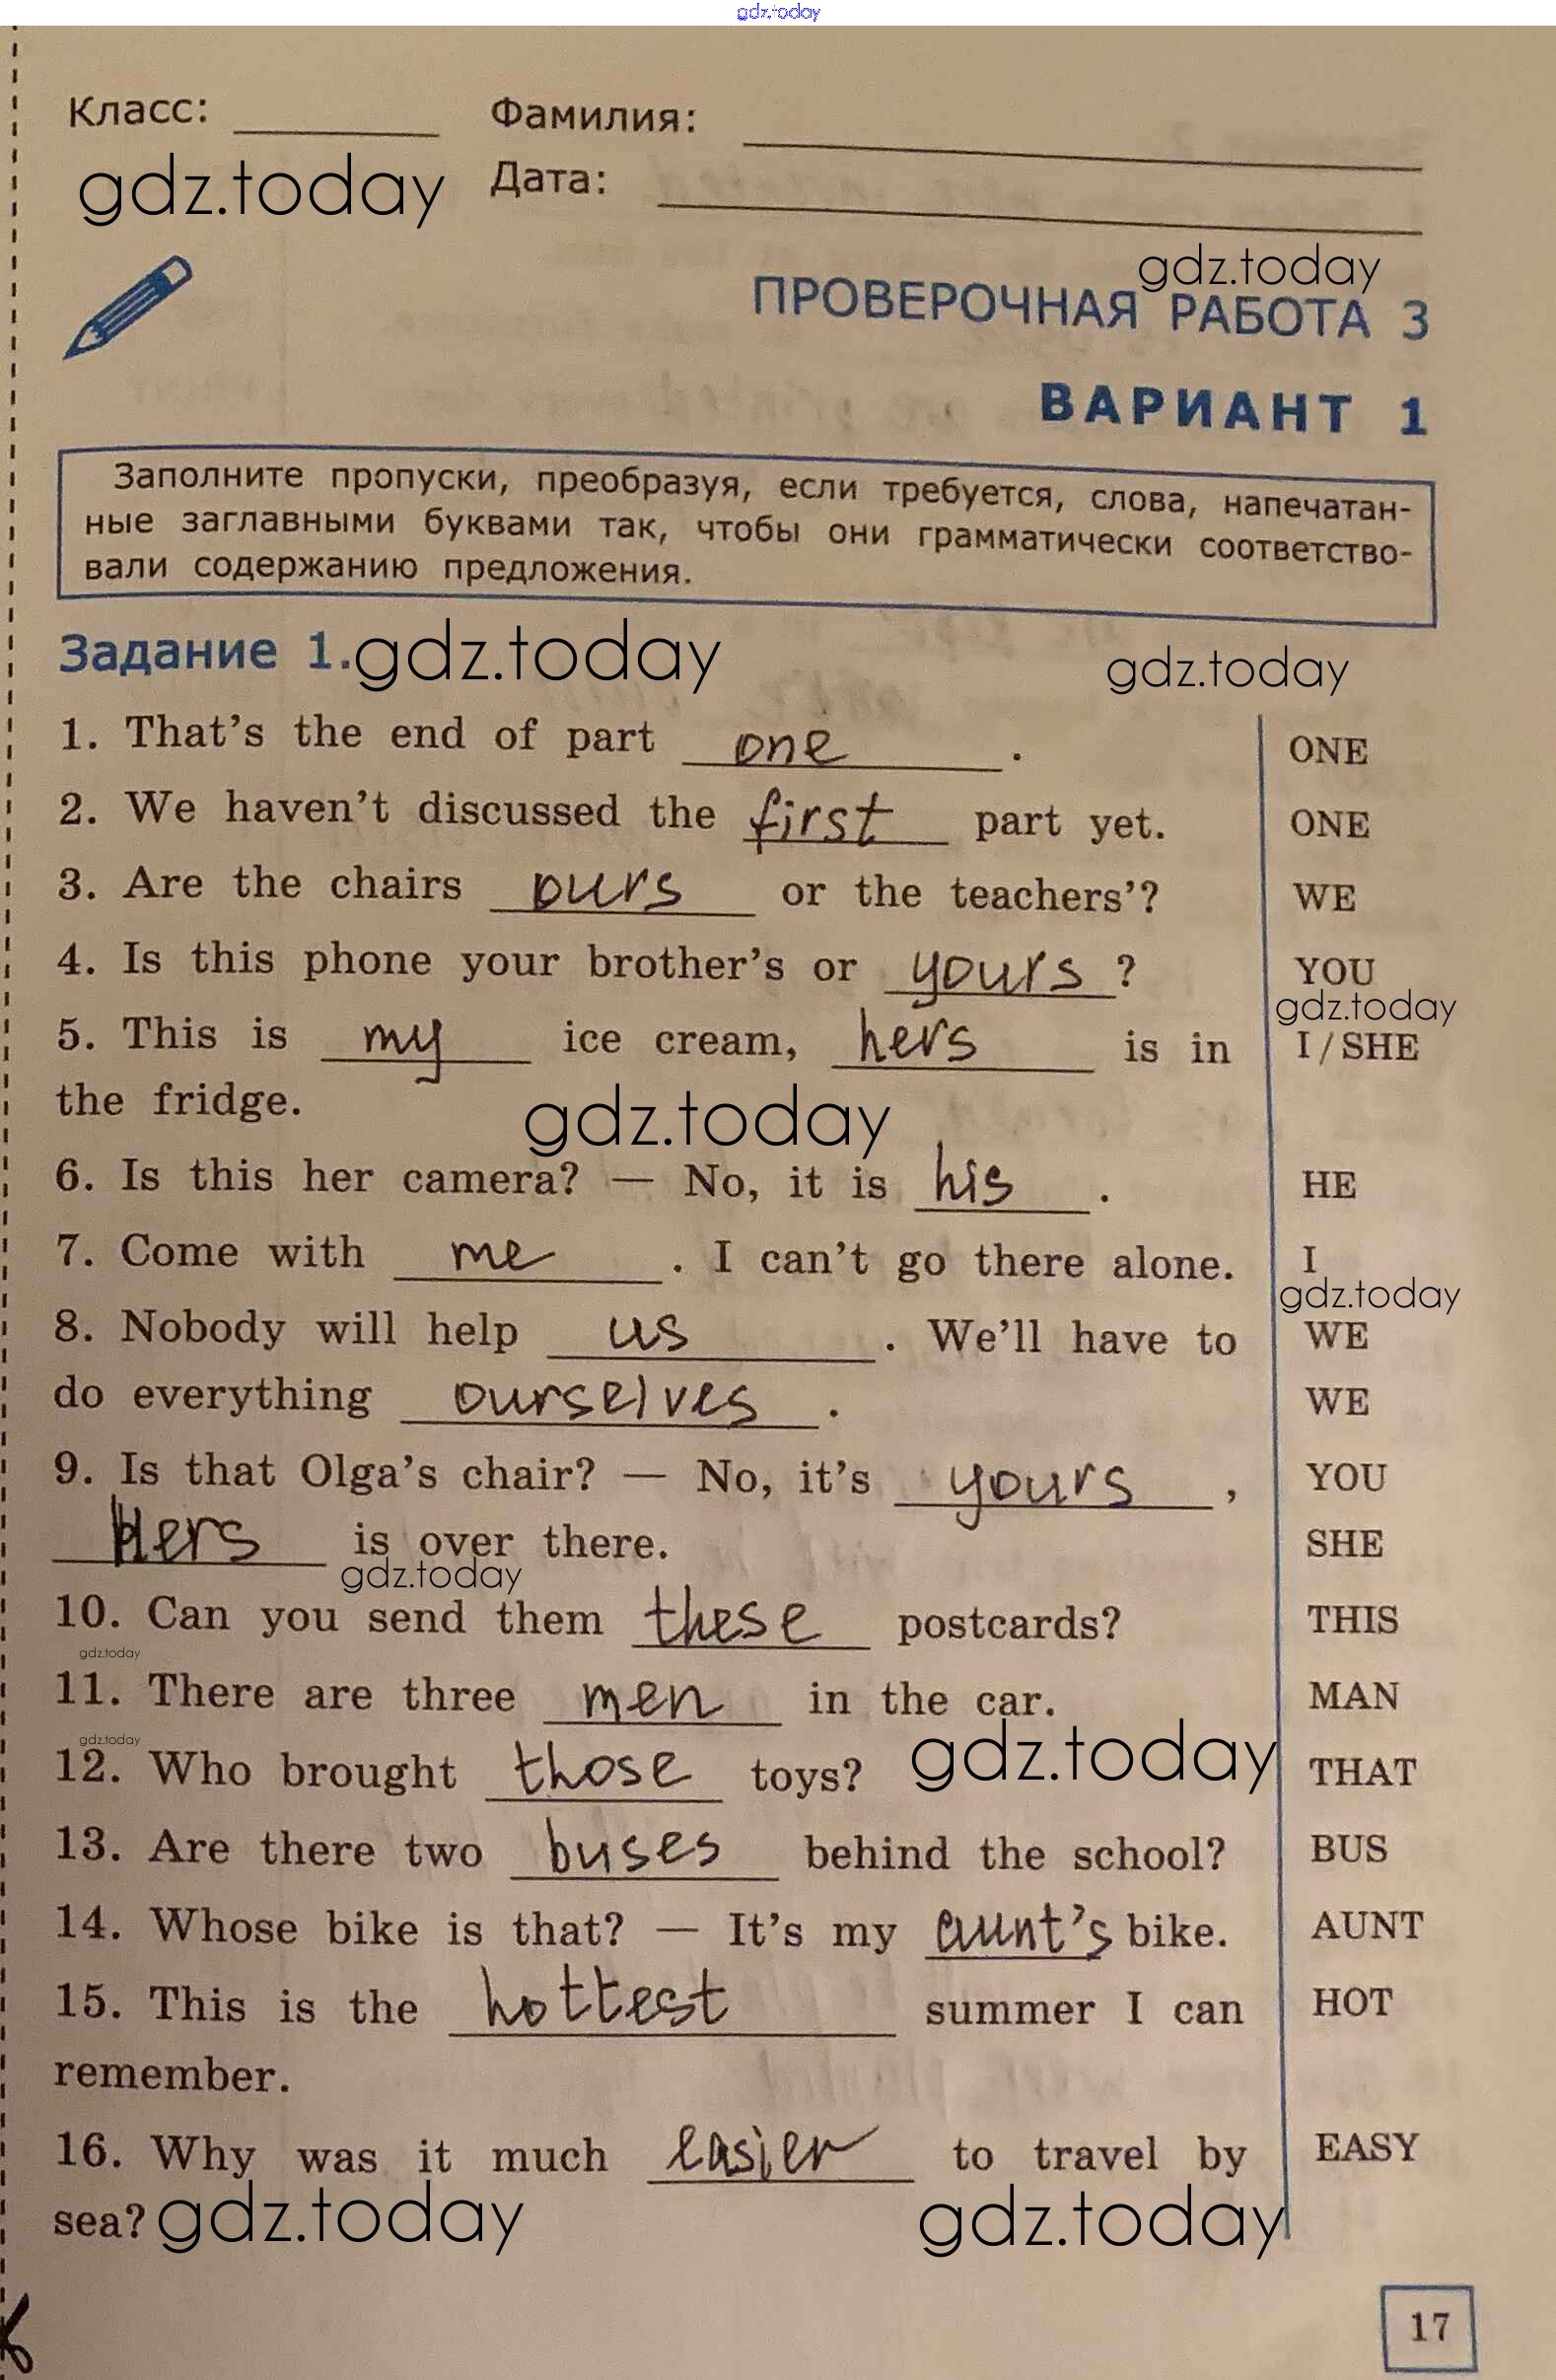 gdz.today
Класс: Фамилия:
gdz.today Дата:
gdz.today
ПРОВЕРОЧНАЯ РАБОТА 3
ВАРИАНТ 1
Заполните пропуски, преобразуя, если требуется, слова, напечатан-
ные заглавными буквами так, чтобы они грамматически соответство-
вали содержанию предложения.
Задание 1. gdz.today gdz.today
1. That's the end of part one . ONE
2. We haven't discussed the first part yet. ONE
3. Are the chairs ours or the teachers'? WE
4. Is this phone your brother's or yours ? YOU
gdz.today
5. This is my ice cream, hers is in I / SHE
the fridge. gdz.today
6. Is this her camera? — No, it is his . HE
7. Come with me . I can't go there alone. I
gdz.today
8. Nobody will help us . We'll have to WE
do everything ourselves . WE
9. Is that Olga's chair? — No, it's yours , YOU
Hers is over there. SHE
gdz.today
10. Can you send them these postcards? THIS
gdz.today
11. There are three men in the car. MAN
gdz.today gdz.today
12. Who brought those toys? THAT
13. Are there two buses behind the school? BUS
14. Whose bike is that? — It's my aunt's bike. AUNT
15. This is the hottest summer I can HOT
remember.
16. Why was it much easier to travel by EASY
sea? gdz.today gdz.today
17